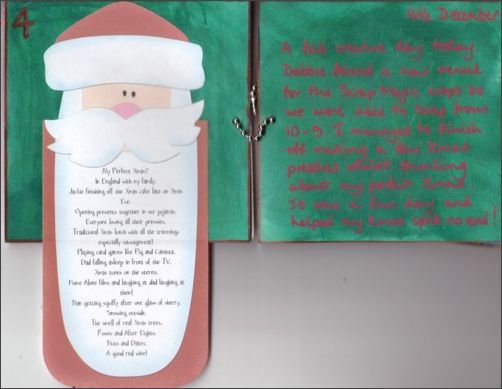 4
My Perfect Xmas?
In England with my family.
Jackie finishing off the Xmas cake late on Xmas
Eve.
Opening presents together in our pyjamas.
Everyone loving all their pressies.
Traditional Xmas lunch with all the trimmings
especially
Playing card games like Pig and
Dad falling asleep in front of the TV.
Xmas tunes on the stereo.
Home Alone films and laughing at dad laughing at
them!
Nan getting squiffy after one glass of sherry.
Snowing outside.
The smell of real Xmas trees.
Roses and After Eights.
Nuts and Dates.
A good red wine!
4th December
A fab creative day today.
Debbie found a new venue
for the Scrap Magic crops so
we were able to stay from
10-9. I managed to finish
off making a few Xmas
pressies whilst
about my perfect Xmas.
It was a fun day and
helped my Xmas Spirit no end!